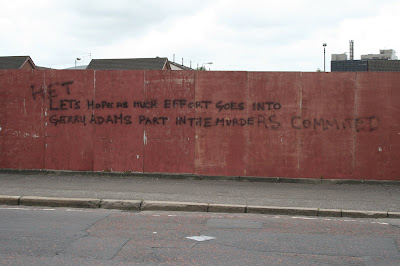 HET
LETS HOPE AS MUCH EFFORT GOES INTO
GERRY ADAMS PART IN THE MURDERS COMMITED